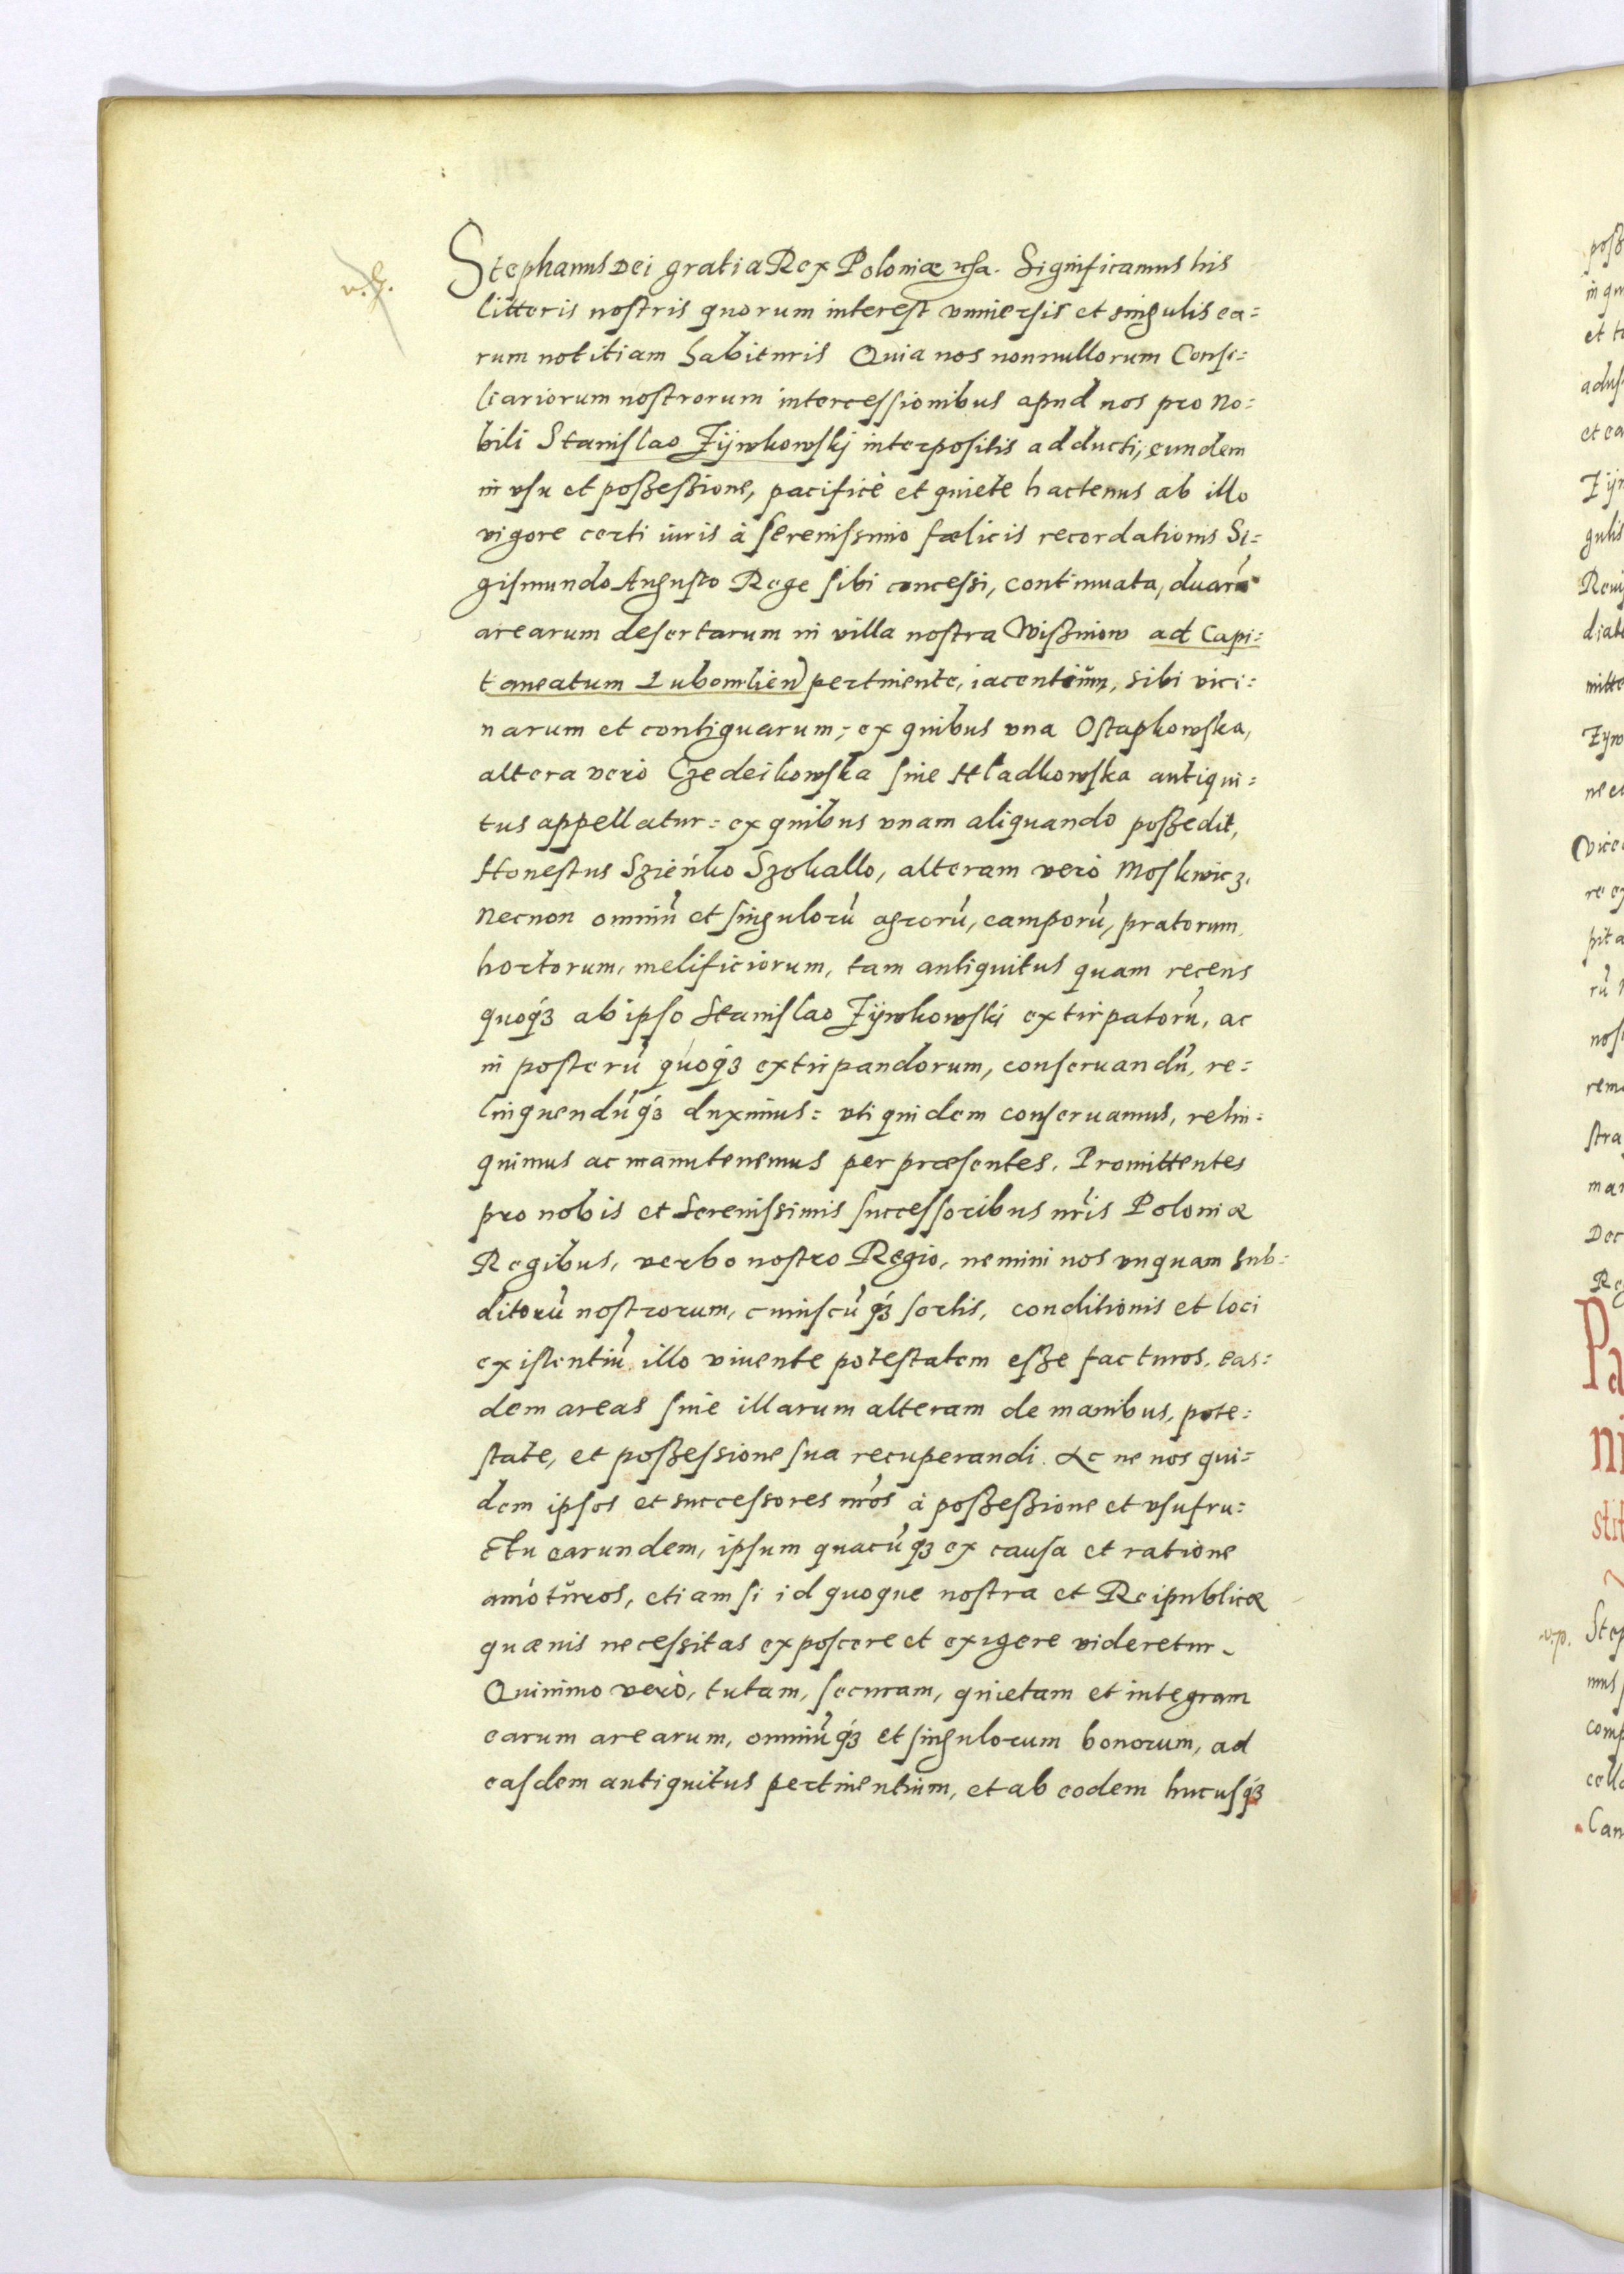 Stephanus Dei gratia Rex Poloniæ Significamus his
litteris nostris quorum interest vniuersis et singulis ea=
rum notitiam habituris Quia nos nonnullorum Consi=
liariorum nostrorum intercessionibus apud nos pro No=
bili Stanislao Zÿwkowskj interpositis adducti, eundem
in vsu et possessione, pacificè et quiete hactenus ab illo
vigore certi iuris à serenissimo fælicis recordationis Si=
gismundo Augusto Rege sibi concessi, continuata, duarũ
arearum desertarum in villa nostra Wiszniow ad Capi=
taneatum Lubomlien pertinente, iacentium, sibi vici=
narum et contiguarum; ex quibus vna Ostapkowska,
altera verò Czedeikowska siue Hladkowska antiqui=
tus appellatur: ex quibus vnam aliquando possedit,
Honestus Szieńko Szokallo, alteram verò Moskwicz.
Necnon omniũ et singulorũ agrorũ, camporũ, pratorum,
hortorum, melificiorum, tam antiquitus quam recens
quoqꝫ ab ipso Stanislao Zÿwkowski extirpatorũ, ac
in posterũ quoqꝫ extirpandorum, conseruandũ, re=
linquendũqꝫ duximus: vti quidem conseruamus, relin=
quimus ac manutenemus per præsentes. Promittentes
pro nobis et Serenissimis successoribus nr̃is Poloniæ
Regibus, verbo nostro Regio, nemini nos vnquam sub=
ditorũ nostrorum, cuiuscũqꝫ sortis, conditionis et loci
existentiũ illo viuente potestatem esse facturos, eas=
dem areas siue illarum alteram de manibus, pote=
state, et possessione sua recuperandi. Ac ne nos qui=
dem ipsos et successores nr̃os à possessione et vsufru=
ctu earundem, ipsum quacũqꝫ ex causa et ratione
amoturos, etiamsi id quoque nostra et Reipublicæ
quæuis necessitas exposcere et exigere videretur.
Quinimo verò, tutam, securam, quietam et integram
earum arearum, omniũqꝫ et singulorum bonorum, ad
easdem antiquitus pertinentium, et ab eodem hucusqꝫ